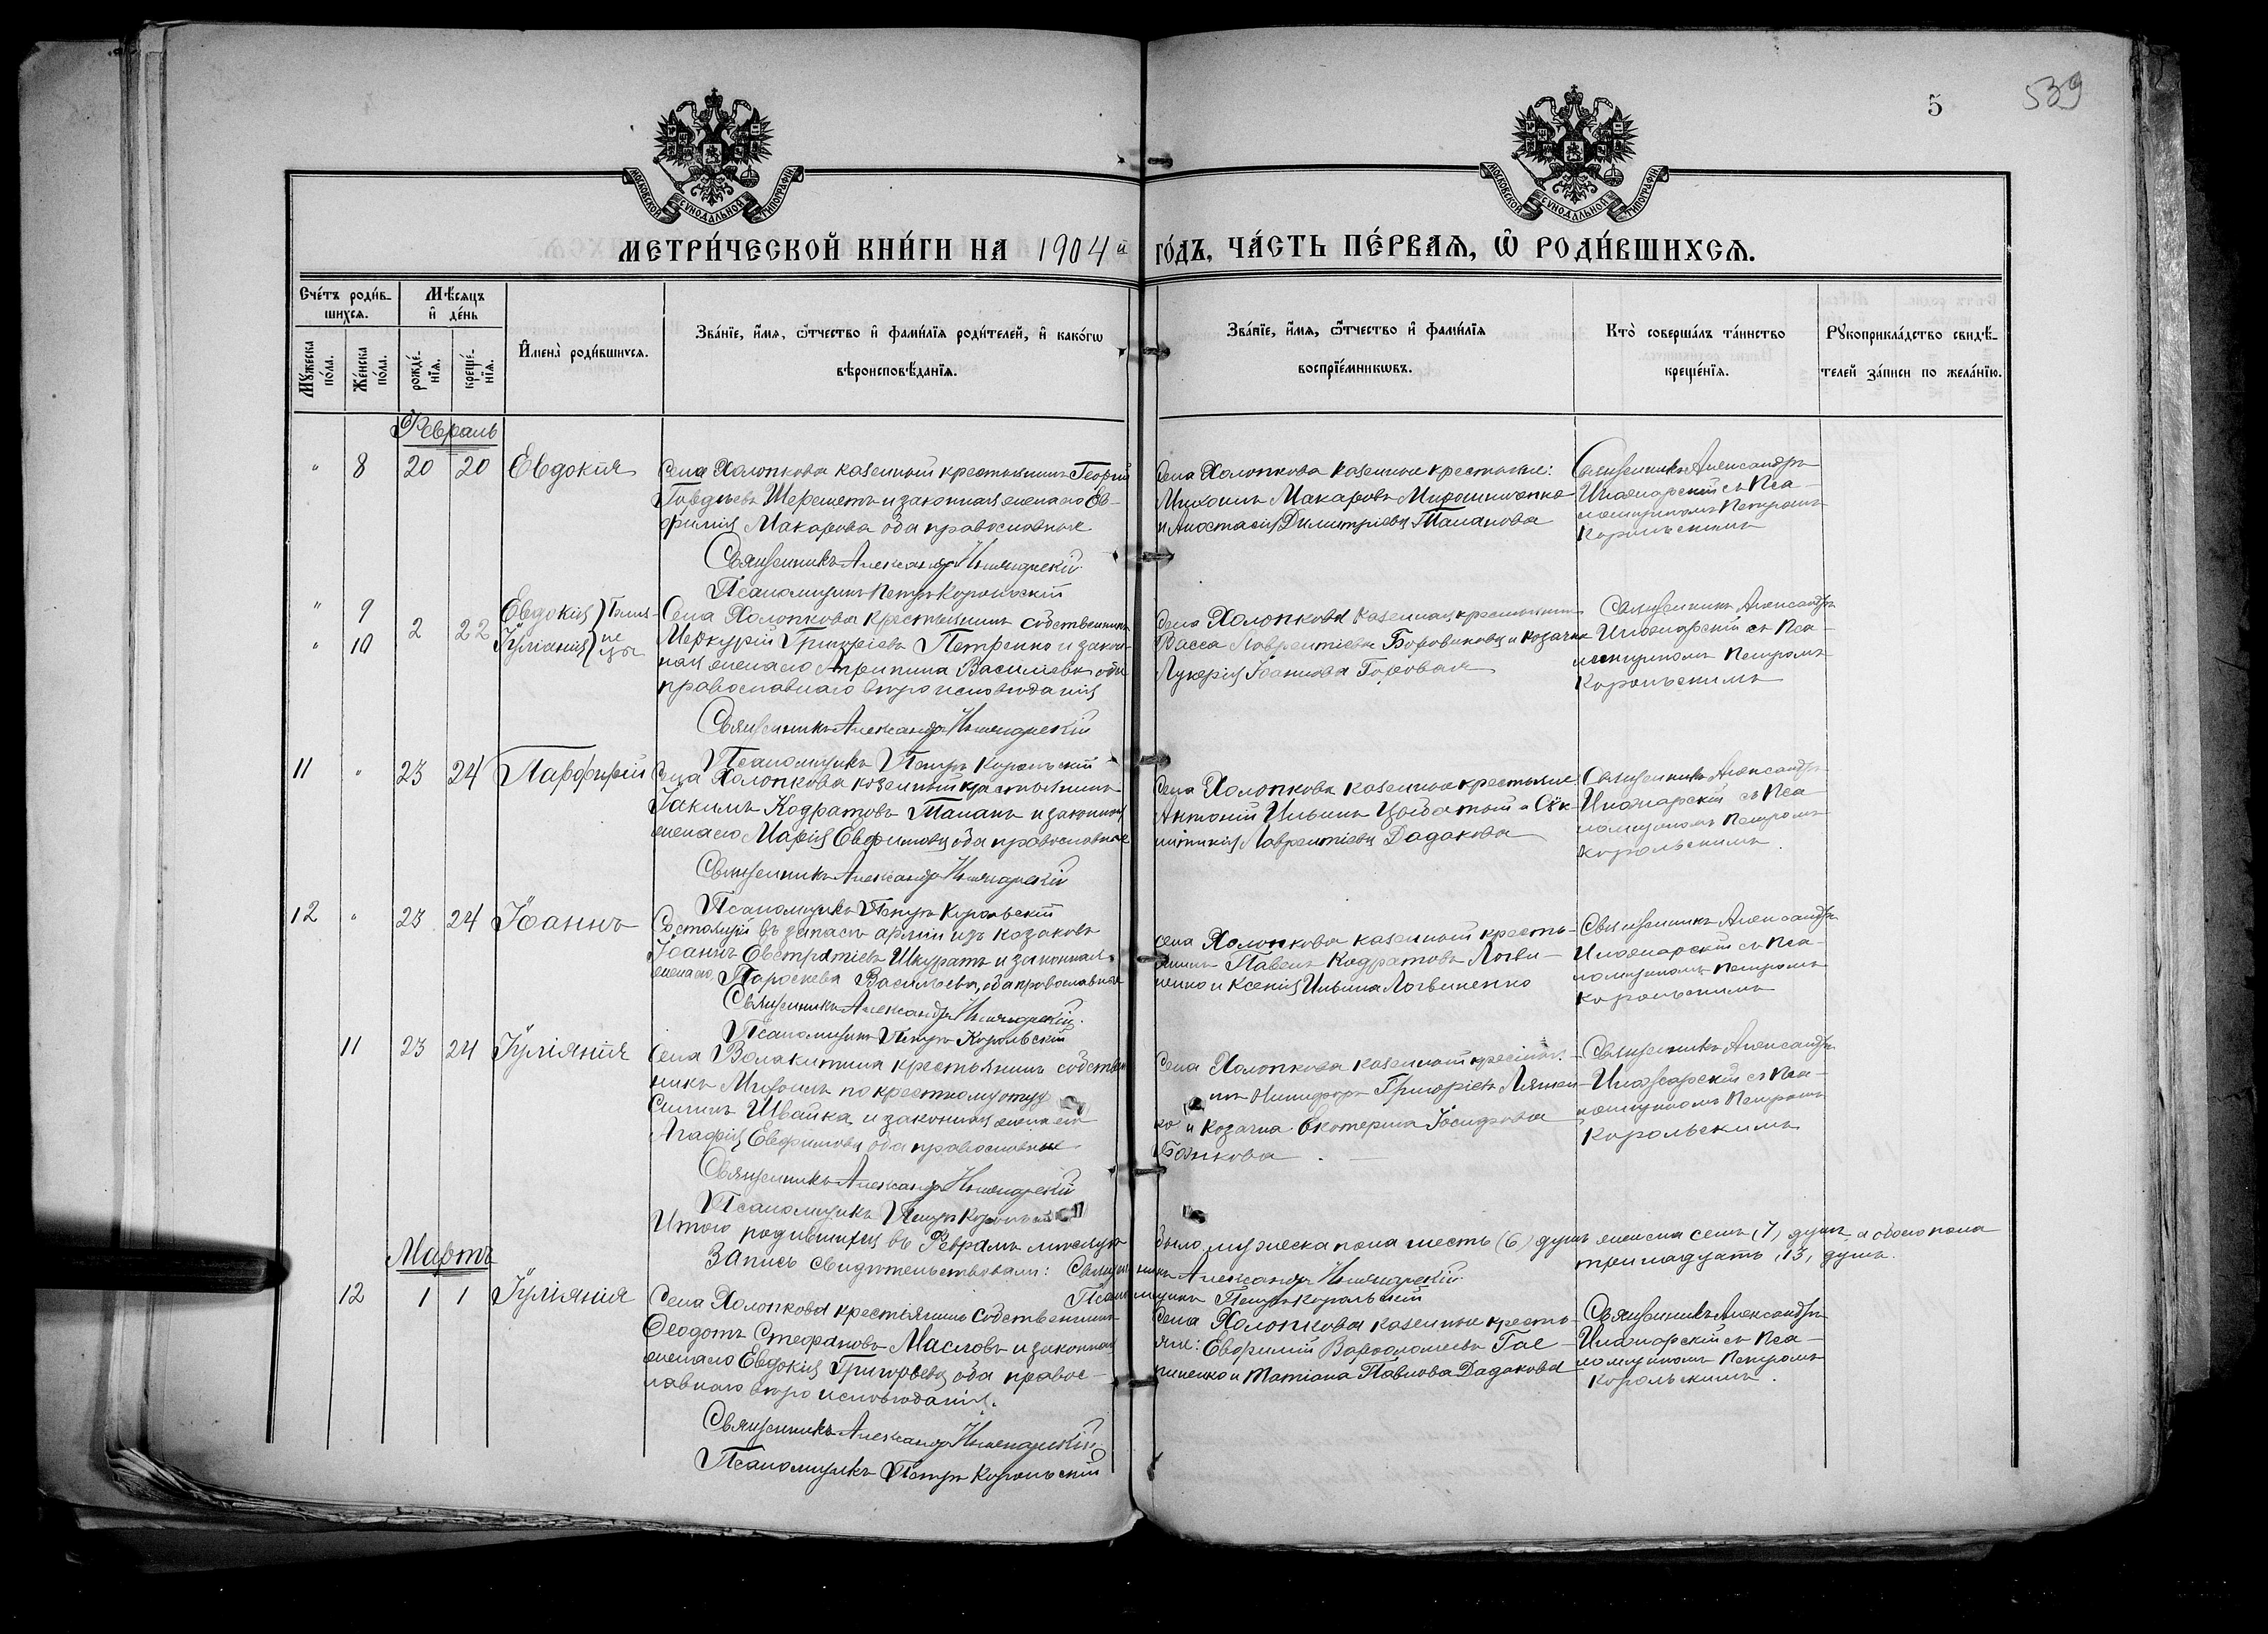 5
539
МОСКОВСКОЙ СУНОДАЛЬНОЙ ТИПОГРАФІИ
МОСКОВСКОЙ СУНОДАЛЬНОЙ ТИПОГРАФІИ
МЕТРИ́ЧЕСКОЙ КНИ́ГИ НА 1904й ГО́ДЪ, ЧА́СТЬ ПЕ́РВАѦ, Ѡ҆ РОДИ́ВШИХСѦ.
Сче́тъ роди́в-
шихсѧ.
Мѣ́сѧцъ
и҆ де́нь
Мꙋ́жеска по́ла.
Же́нска по́ла.
рожде́-
нїѧ.
креще́-
нїѧ.
И҆мена̀ роди́вшихсѧ.
Зва́нїе, и҆́мѧ, ѻ҆́тчество и҆ фами́лїѧ роди́телей, и҆ како́гѡ
вѣроисповѣ́данїѧ.
Зва́нїе, и҆́мѧ, ѻ҆́тчество и҆ фами́лїѧ
воспрїе́мникѡвъ.
Кто̀ соверша́лъ та́инство
креще́нїѧ.
Рꙋкоприкла́дство свидѣ́-
телей за́писи по жела́нїю.
Февраль
" 8 20 20 Евдокія
Села Холопкова казенный крестьянинъ Георгій
Шереметъ и законная жена его Ев-
фимія Макарова оба православные
Священникъ Александръ
Псаломщикъ Петръ Корольскій
Села Холопкова казенные крестьяне:
Михаилъ Макаровъ Мирошниченко
и Анастасія Димитріева Таланова
Священникъ Александръ
съ Пса-
ломщикомъ Петромъ
Корольскимъ
" 9
" 10
2 22
Евдокія
Іуліанія
Близ-
не
цы
Села Холопкова крестьянинъ собственникъ
Меркурій Григоріевъ Петренко и закон-
ная жена его Агрипина Васильева оба
православнаго вѣроисповѣданія
Священникъ Александръ
Псаломщикъ Петръ Корольскій
Села Холопкова казенная крестьянка
Васса Лаврентіева Боровикова и козачка
Лукерія Іоаннова Горовая
Священникъ Александръ
съ Пса-
ломщикомъ Петромъ
Корольскимъ
11 " 23 24 Парфирій
Села Холопкова казенный крестьянинъ
Іакимъ Кодратовъ Таланъ и законная
жена его Марія Евфимова оба православные
Священникъ Александръ
Псаломщикъ Петръ Корольскій
Села Холопкова казенные крестьяне
Антоній Ильинъ Цыбатый и Ев-
Лаврентіева Дадакова
Священникъ Александръ
съ Пса-
ломщикомъ Петромъ
Корольскимъ.
12 " 23 24 Іоаннъ
Состоящій въ запасѣ арміи изъ козаковъ
Іоаннъ Евстратіевъ Шкуратъ и законная
жена его Параскева Васильева, оба православные
Священникъ Александръ
Псаломщикъ Петръ Корольскій
Села Холопкова казенный кресть-
янинъ Павелъ Кодратовъ Логви-
ненко и Ксенія Ильина Логвиненко
Священникъ Александръ
съ Пса-
ломщикомъ Петромъ
Корольскимъ
11 23 24 Іуліанія
Села Волокитина крестьянинъ собствен
никъ Михаилъ по крестному отцу
Швайка и законная жена его
Агафія Евфимова оба православные
Священникъ Александръ
Псаломщикъ Петръ Корольскій
Села Холопкова казенный крестьян-
инъ Никифоръ Григоріевъ Ляшен-
ко и козачка Екатерина Іосифова
Бойкова.
Священникъ Александръ
съ Пса-
ломщикомъ Петромъ
Корольскимъ
Итого родившихся въ Февралѣ мѣсяцѣ было мужеска пола шесть (6) душъ женска семь (7) душъ а обоего пола
тринадцать (13) душъ.
Запись свидѣтельствовали: Священникъ Александръ
Псаломщикъ Петръ Корольскій
Мартъ
12 1 1 Іуліанія
Села Холопкова крестьянинъ собственникъ
Ѳеодотъ Стефановъ Масловъ и законная
жена его Евдокія Григорьева оба правос-
лавнаго вѣроисповѣданія.
Священникъ Александръ
Псаломщикъ Петръ Корольскій
Села Холопкова казенные кресть-
яне: Евфимій Варфоломеевъ Гае-
и Татіана Павлова Дадакова
Священникъ Александръ
съ Пса-
ломщикомъ Петромъ
Корольскимъ.